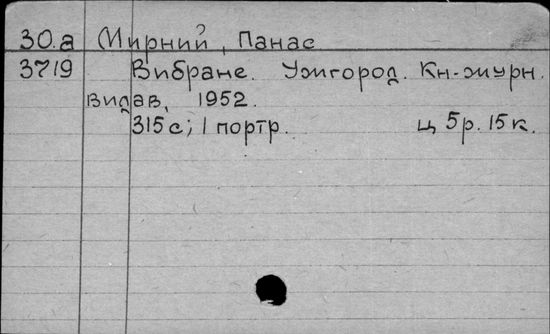 30.а Мирний, Панас
3719 Вибране. Ужгород. Кн-журн.
видав, 1952.
315 с; 1 портр. ц 5р. 15 к.